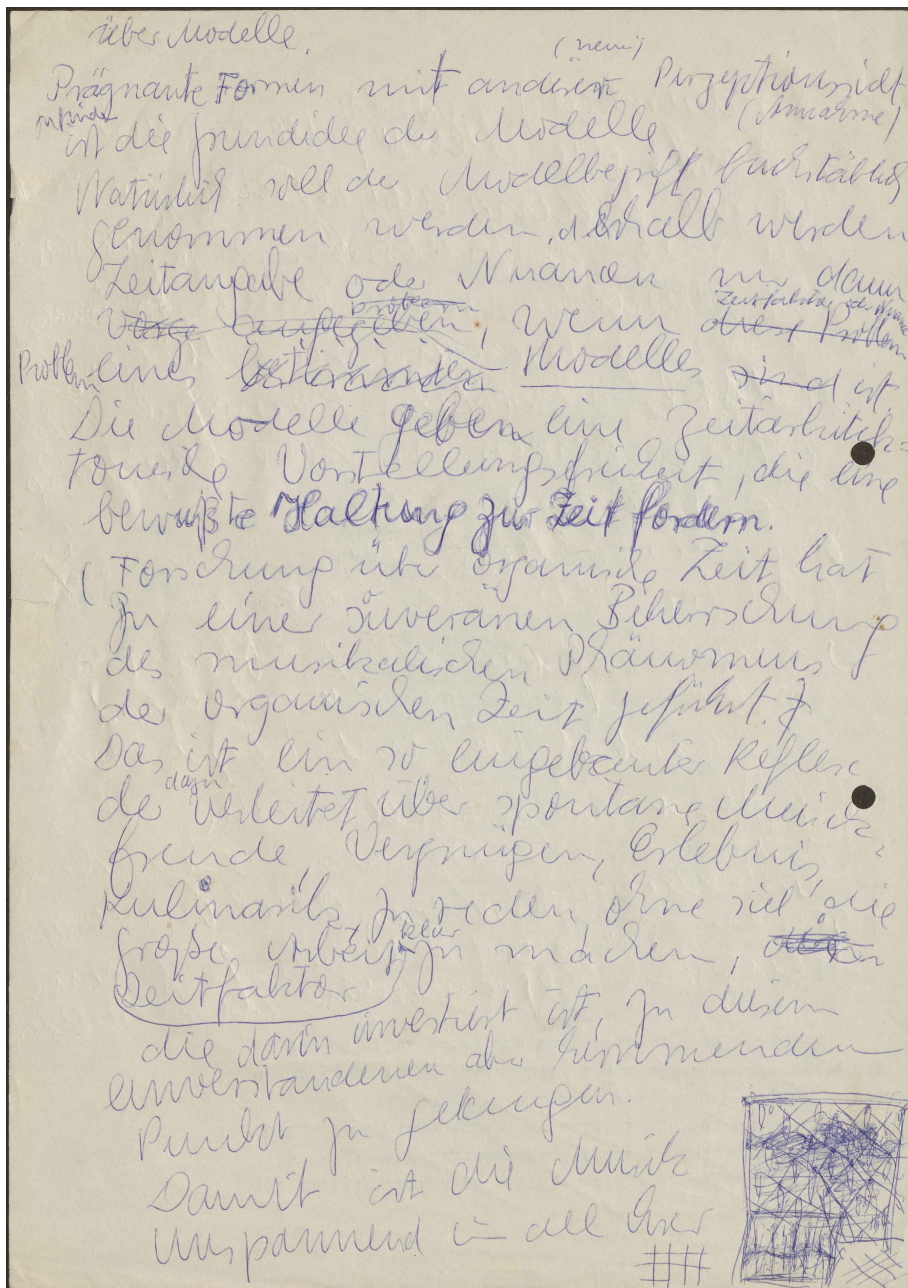 über Modelle.
(neue)
Prägnante Formen mit anderer Perzeptionssicht
zu finden (Annahme)
ist die Grundidee der Modelle
Natürlich soll der Modellbegriff buchstäblich
genommen werden, deshalb werden
Zeitangabe oder Nuancen nur dann
Problem Zeitfaktor oder Nuance
angegeben, wenn diese Problem
Problem eines bestimmten Modelles sind ist
Die Modelle geben eine Zeitarchitek-
tonische Vorstellungsfreiheit, die eine
bewußte Haltung zur Zeit fordern.
(Forschung über organische Zeit hat
zu einer suveränen Beherrschung
des musikalischen Phänomens
der organischen Zeit geführt.)
Das ist ein so eingebauter Reflex
der dazu verleitet über spontane Musik-
freude, Vergnügen, Erlebnis,
Kulinarik zu reden, ohne sich die
große Arbeit klar zu machen,
Zeitfaktor
die darin investiert ist, zu diesem
einverstandenen aber hemmenden
Punkt zu gelangen.
Damit ist die Musik
unspannend in all ihrer